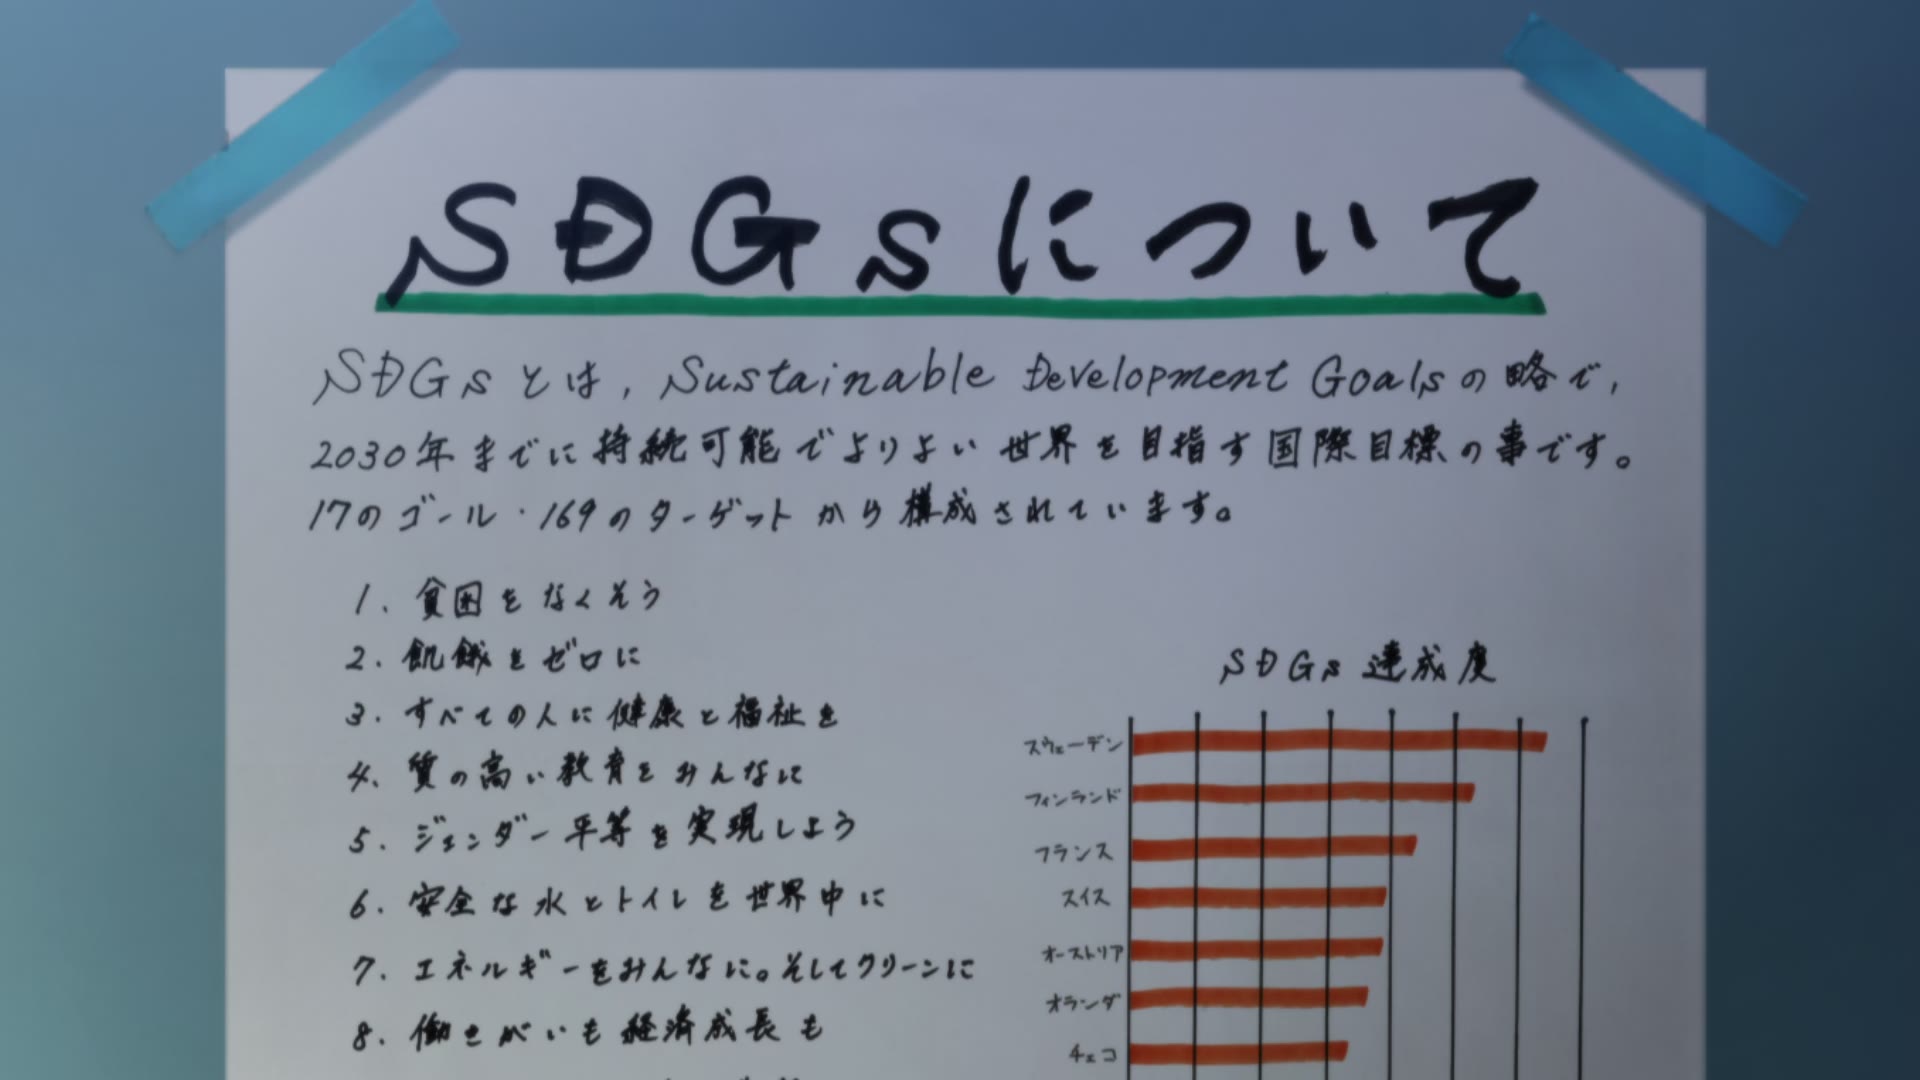 SDGsについて
SDGsとは，Sustainable Development Goalsの略で，
2030年までに持続可能でよりよい世界を目指す国際目標の事です。
17のゴール・169のターゲットから構成されています。
1. 貧困をなくそう
2. 飢餓をゼロに
3. すべての人に健康と福祉を
4. 質の高い教育をみんなに
5. ジェンダー平等を実現しよう
6. 安全な水とトイレを世界中に
7. エネルギーをみんなに。そしてクリーンに
8. 働きがいも経済成長も
SDGs達成度
スウェーデン
フィンランド
フランス
スイス
オーストリア
オランダ
チェコ